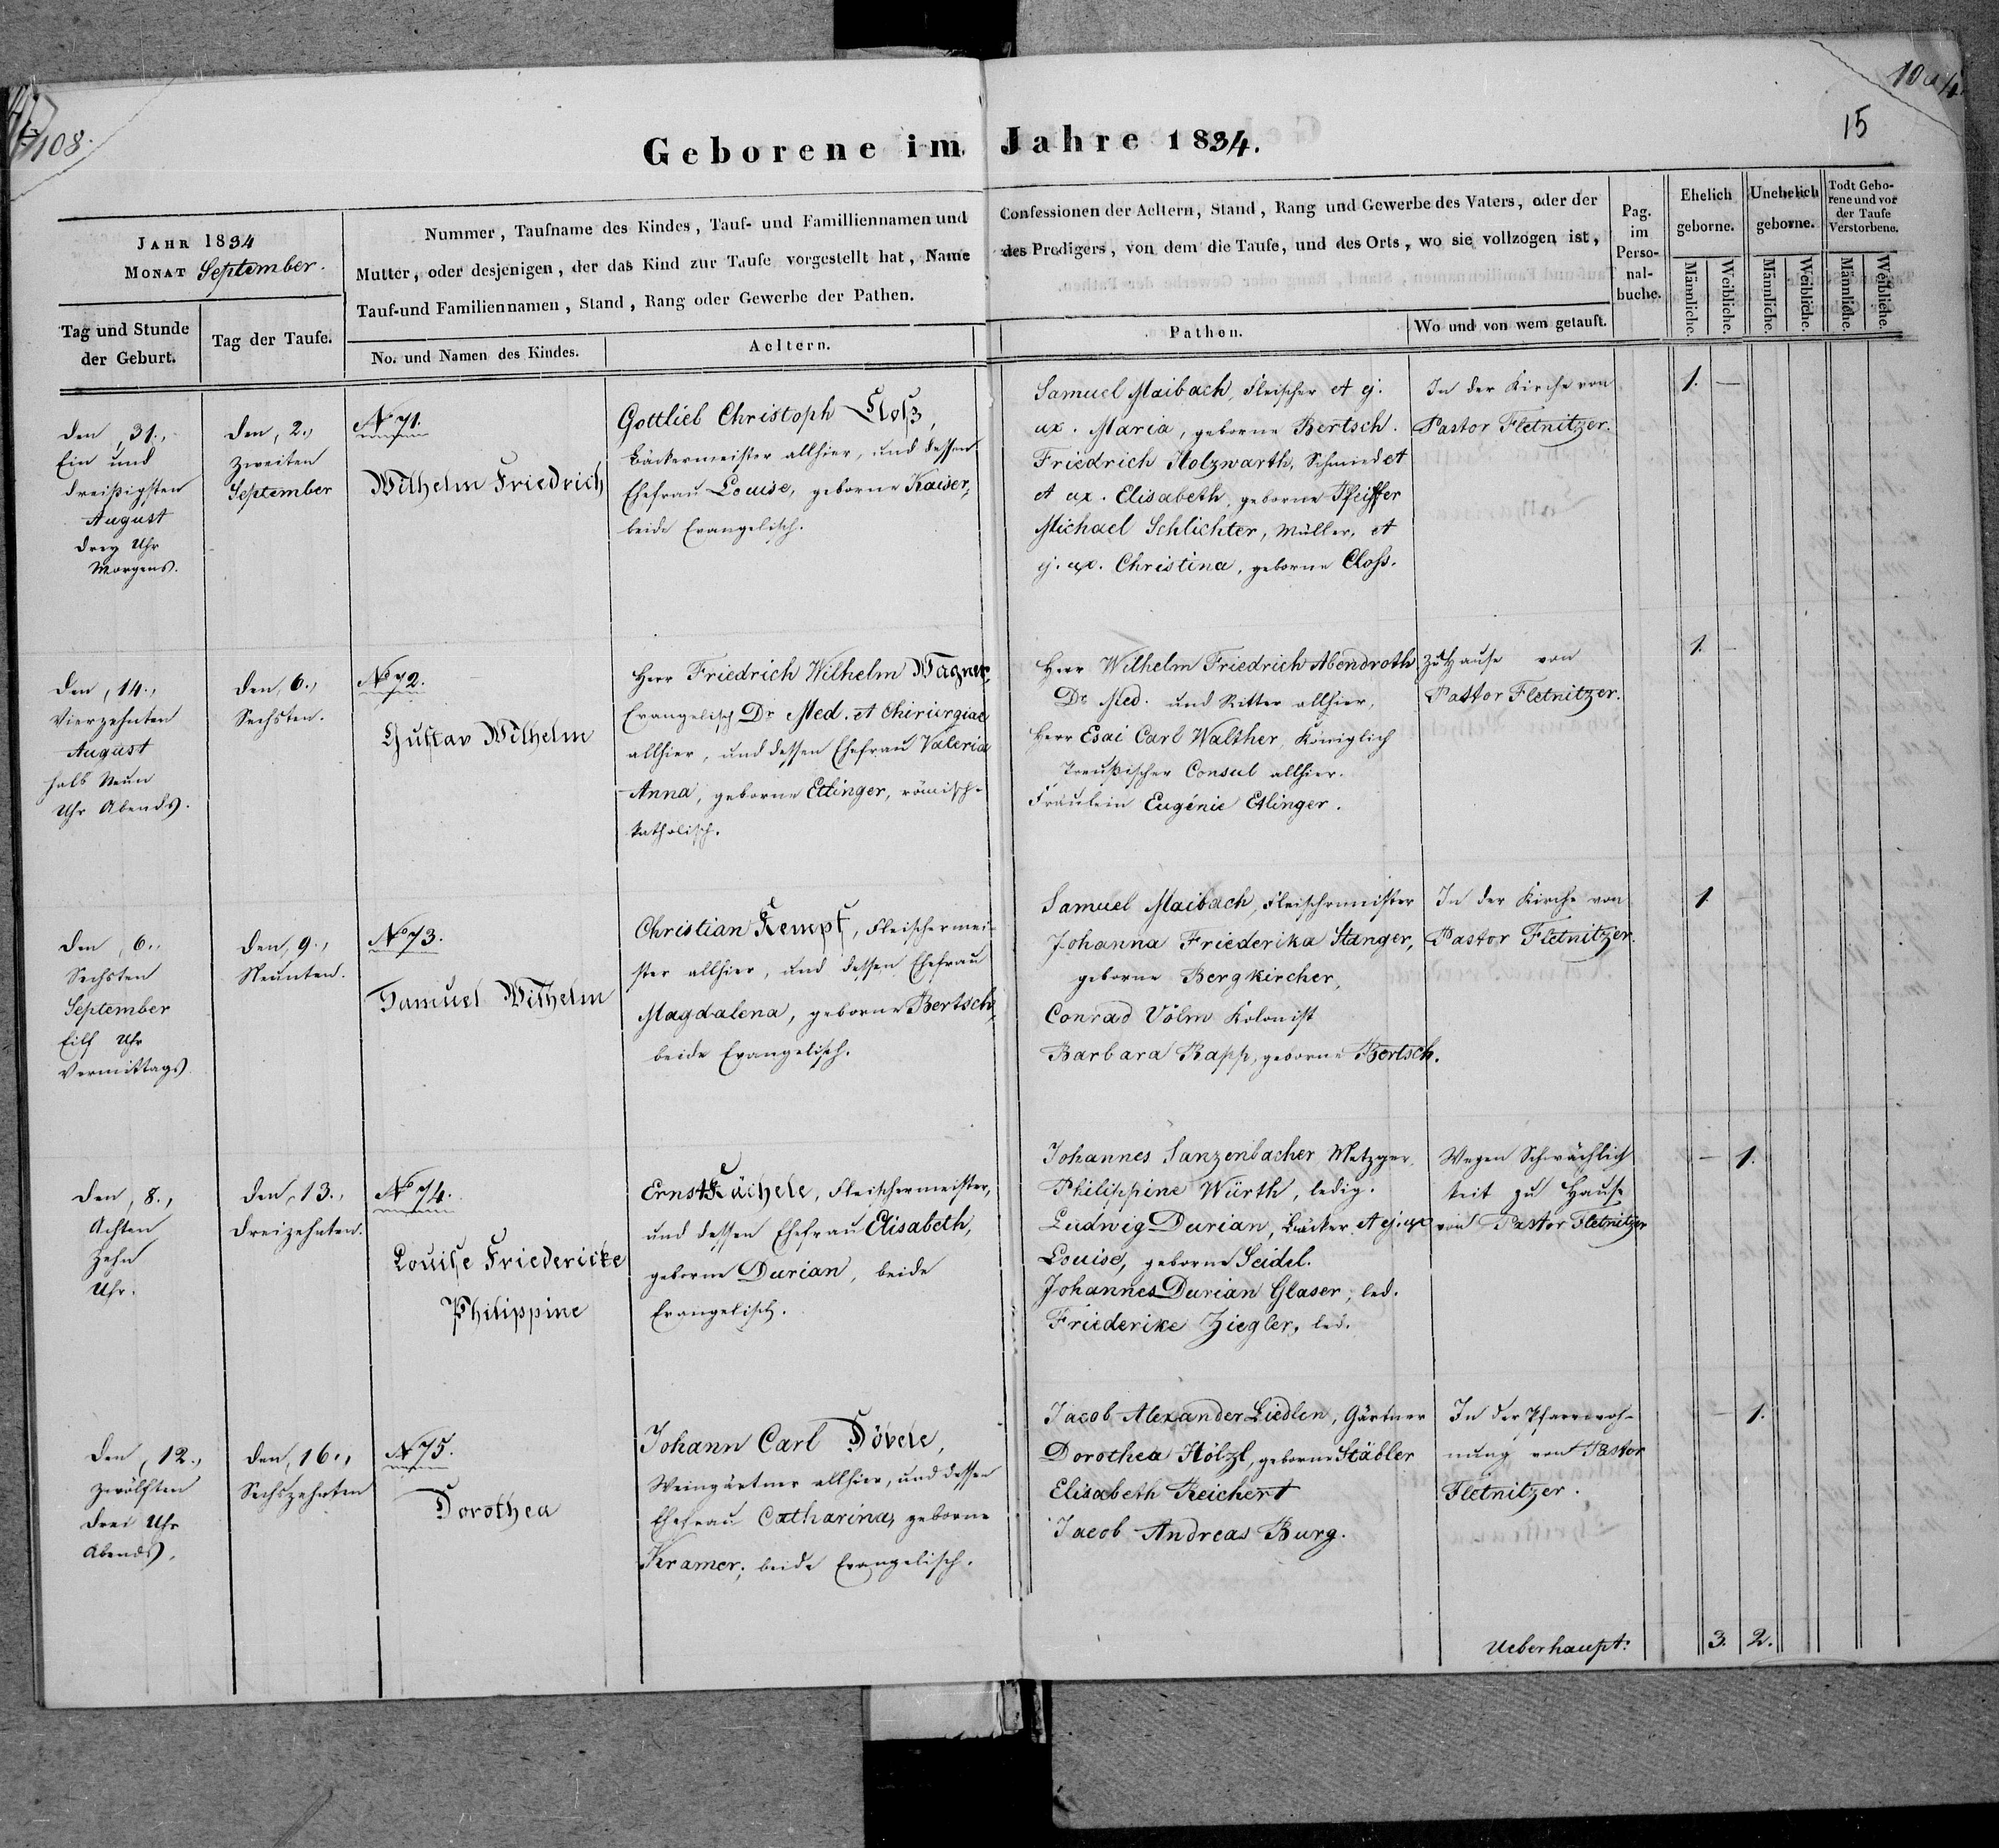 108.
10
15
Geborene im Jahre 1834.
JAHR 1834
MONAT September.
Nummer, Taufname des Kindes, Tauf- und Familliennamen und
Mutter, oder desjenigen, der das Kind zur Taufe vorgestellt hat, Name
Tauf-und Familiennamen, Stand, Rang oder Gewerbe der Pathen.
Confessionen der Aeltern, Stand, Rang und Gewerbe des Vaters, oder der
des Predigers, von dem die Taufe, und des Orts, wo sie vollzogen ist,
Pag.
im
Perso-
nal-
buche.
Ehelich
geborne.
Unehelich
geborne.
Todt Gebo-
rene und vor
der Taufe
Verstorbene.
Männliche.
Weibliche.
Männliche.
Weibliche.
Männliche.
Weibliche.
Tag und Stunde
der Geburt.
Tag der Taufe.
No. und Namen des Kindes.
Aeltern.
Pathen.
Wo und von wem getauft.
den, 31.,
Ein und
dreißigsten
August
drey Uhr
Morgens.
den, 2.,
Zweiten
September
No 71.
Wilhelm Friedrich
Gottlieb Christoph Cloß,
Bäckermeister allhier, und dessen
Ehefrau Louise, geborne Kaiser,
beide Evangelisch.
Samuel Maibach, Fleischer et ej.
ux. Maria, geborne Bertsch.
Friedrich Holzwarth, Schmied et
et ux. Elisabeth, geborne Pfeiffer
Michael Schlichter, Müller, et
ej. ux. Christina, geborne Closs.
In der Kirche von
Pastor Fletnitzer.
1. —
den, 14.,
Vierzehnten
August
halb Neun
Uhr Abends.
den, 6.,
Sechsten.
No 72.
Gustav Wilhelm
Herr Friedrich Wilhelm Wagner,
Evangelisch Dr Med. et Chirurgiae
allhier, und dessen Ehefrau Valeria
Anna, geborne Ettinger, römisch-
katholisch.
Herr Wilhelm Friedrich Abendroth
Dr Med. und Ritter allhier,
Herr Esai Carl Walther, Königlich
Preußischer Consul allhier.
Fräulein Eugénie Etlinger.
Zu Hause von
Pastor Fletnitzer.
1. —
den, 6.,
Sechsten
September
Eilf Uhr
Vormittags
den, 9.,
Neunten.
No 73.
Samuel Wilhelm
Christian Kempf, Fleischermei-
ster allhier, und dessen Ehefrau
Magdalena, geborne Bertsch,
beide Evangelisch.
Samuel Maibach, Fleischermeister
Johanna Friederika Stanger,
geborne Bergkircher,
Conrad Völm Kolonist
Barbara Rapp, geborne Bertsch.
In der Kirche von
Pastor Fletnitzer.
1
den, 8.,
Achten
Zehn
Uhr.
den, 13.,
Dreizehnten.
No 74.
Louise Friedericke
Philippine
Ernst Kächele, Fleischermeister,
und dessen Ehefrau Elisabeth,
geborne Durian, beide
Evangelisch.
Johannes Sanzenbacher Metzger.
Philippine Würth, ledig.
Ludwig Durian, Bäcker et ej. ux
Louise, geborne Seidel.
Johannes Durian Glaser, led.
Friederike Ziegler, led.
Wegen Schwächlich
keit zu Hause
von Pastor Fletnitzer
— 1.
den, 12.,
Zwölften
Drei Uhr
Abends.
den, 16.,
Sechszehnten
No 75.
Dorothea
Johann Carl Döbele,
Weingärtner allhier, und dessen
Ehefrau Catharina, geborne
Kramer, beide Evangelisch.
Jacob Alexander Liedlen, Gärtner
Dorothea Hölzl, geborne Stäbler
Elisabeth Reichert
Jacob Andreas Burg.
In der Pfarrwoh-
nung von Pastor
Fletnitzer.
— 1.
Ueberhaupt: 3. 2.